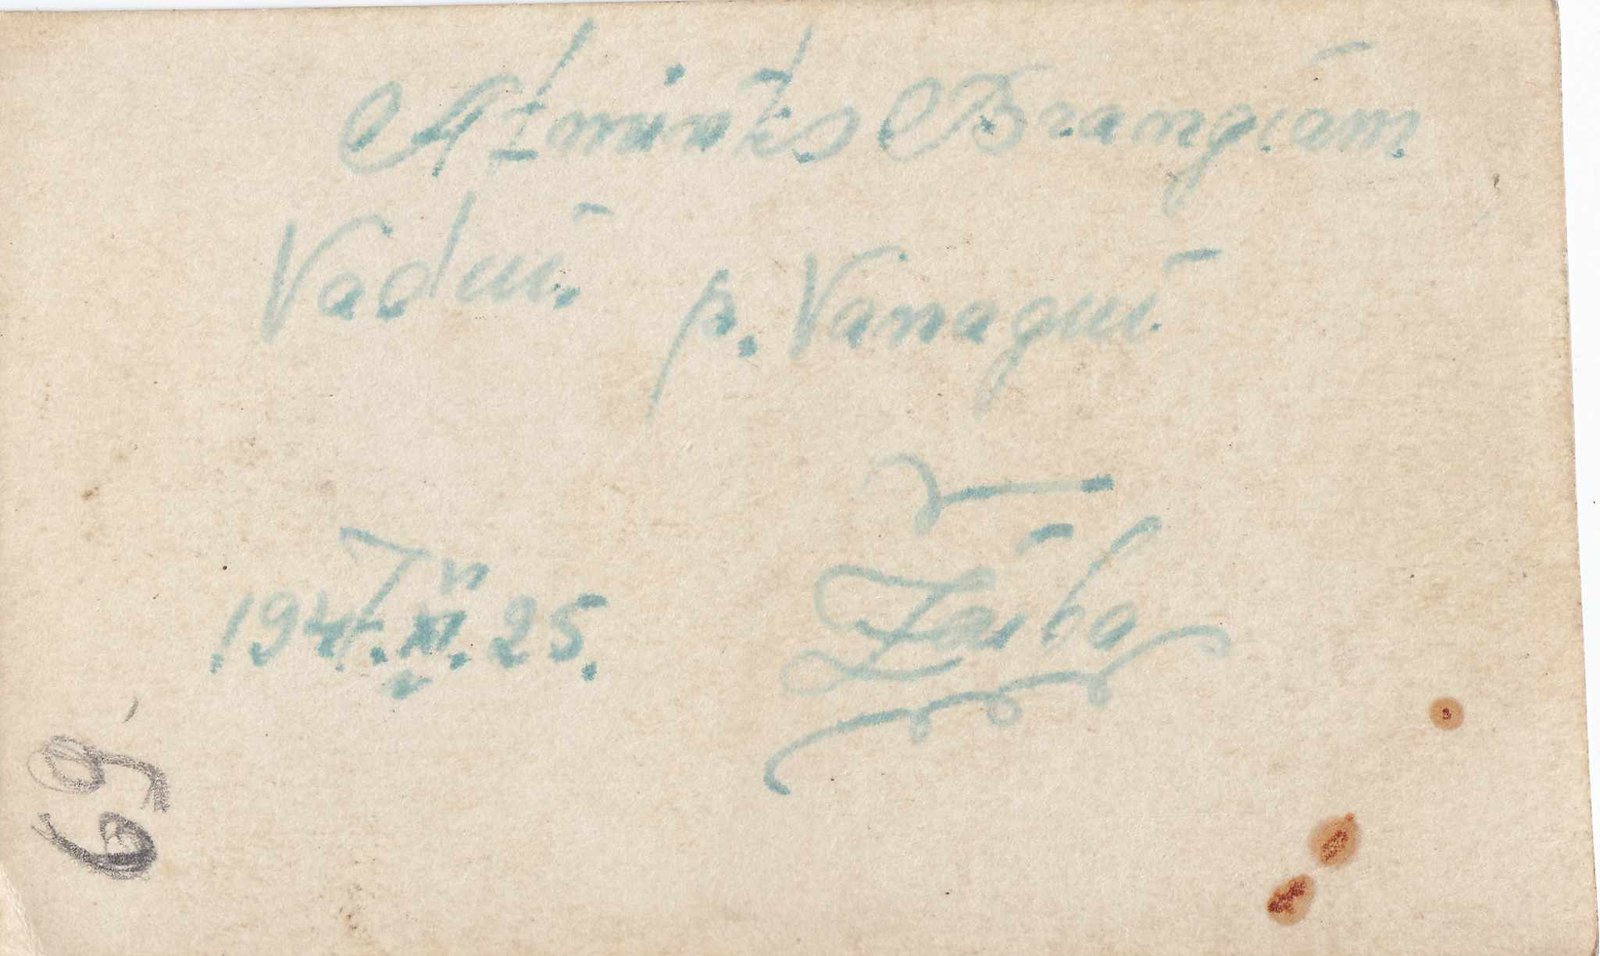 Atmintes Brangiam
Vadui. p. Vanagui
1947.VI.25. Žaibo
69